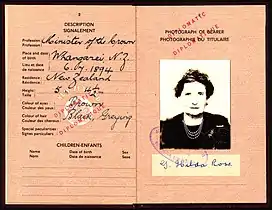 2
DESCRIPTION
SIGNALEMENT
Profession
Profession
Minister of the Crown
Place and date
of birth
Lieu et date
de naissance
Whangarei N.Z.
6.7.1894
Residence
Résidence
New Zealand
Height
Taille
5
Colour of eyes
Couleur des yeux
Brown
Colour of hair
Couleur des cheveux
Black, Greying
Special peculiarities
Signes particuliers
CHILDREN-ENFANTS
Name
Nom
Date of birth
Date de naissance
Sex
Sexe
3
DIPLOMATIC
PHOTOGRAPH OF BEARER
PHOTOGRAPHIE DU TITULAIRE
DIPLOMATIQUE
G. Hilda Ross